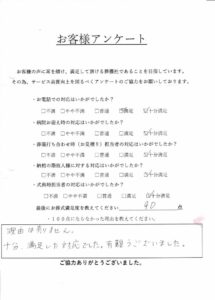 お客様アンケート
お客様の声に耳を傾け、満足して頂ける葬儀社であることを目指しています。
その為、サービス品質向上を図るべくアンケートのご協力をお願いしております。
・お電話での対応はいかがでしたか？
□不満 □やや不満 □普通 □満足 □十分満足
・病院お迎え時の対応はいかがでしたか？
□不満 □やや不満 □普通 □満足 □十分満足
・葬儀打ち合わせ時（お見積り）担当者の対応はいかがでしたか？
□不満 □やや不満 □普通 □満足 □十分満足
・納棺の際の対応はいかがでしたか？
□不満 □やや不満 □普通 □満足 □十分満足
・式典時担当者の対応はいかがでしたか？
□不満 □やや不満 □普通 □満足 □十分満足
最後にお気持ち満足度を教えてください。 90 点
・１００点にならなかった理由を教えてください。
理由は有りません。
十分、満足した対応でした。有難うございました。
ご協力ありがとうございました。